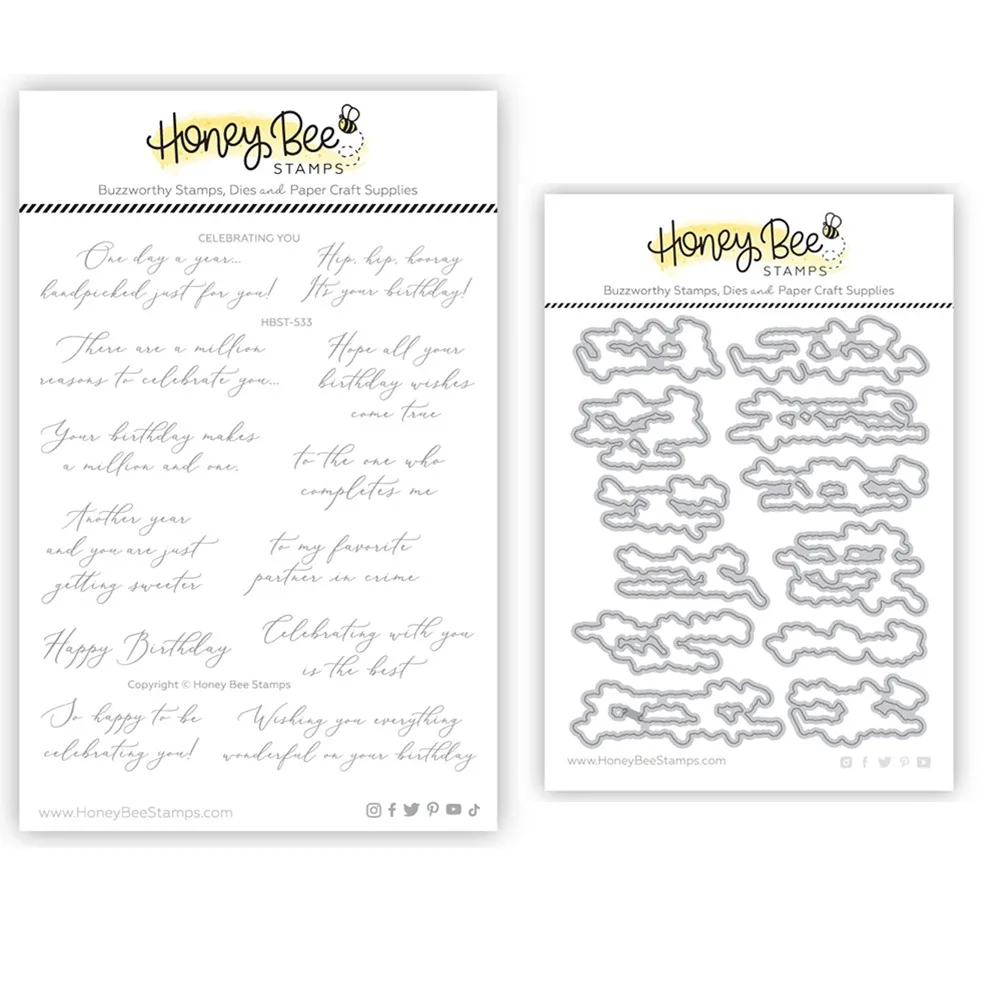 Honey Bee
STAMPS
Buzzworthy Stamps, Dies and Paper Craft Supplies
CELEBRATING YOU
One day a year...
handpicked just for you!
Hip, hip, hooray
It's your birthday!
HBST-533
There are a million
reasons to celebrate you...
Hope all your
birthday wishes
come true
Your birthday makes
a million and one.
to the one who
completes me
Another year
and you are just
getting sweeter
to my favorite
partner in crime
Happy Birthday
Celebrating with you
is the best
Copyright © Honey Bee Stamps
So happy to be
celebrating you!
Wishing you everything
wonderful on your birthday
www.HoneyBeeStamps.com
Honey Bee
STAMPS
Buzzworthy Stamps, Dies and Paper Craft Supplies
www.HoneyBeeStamps.com